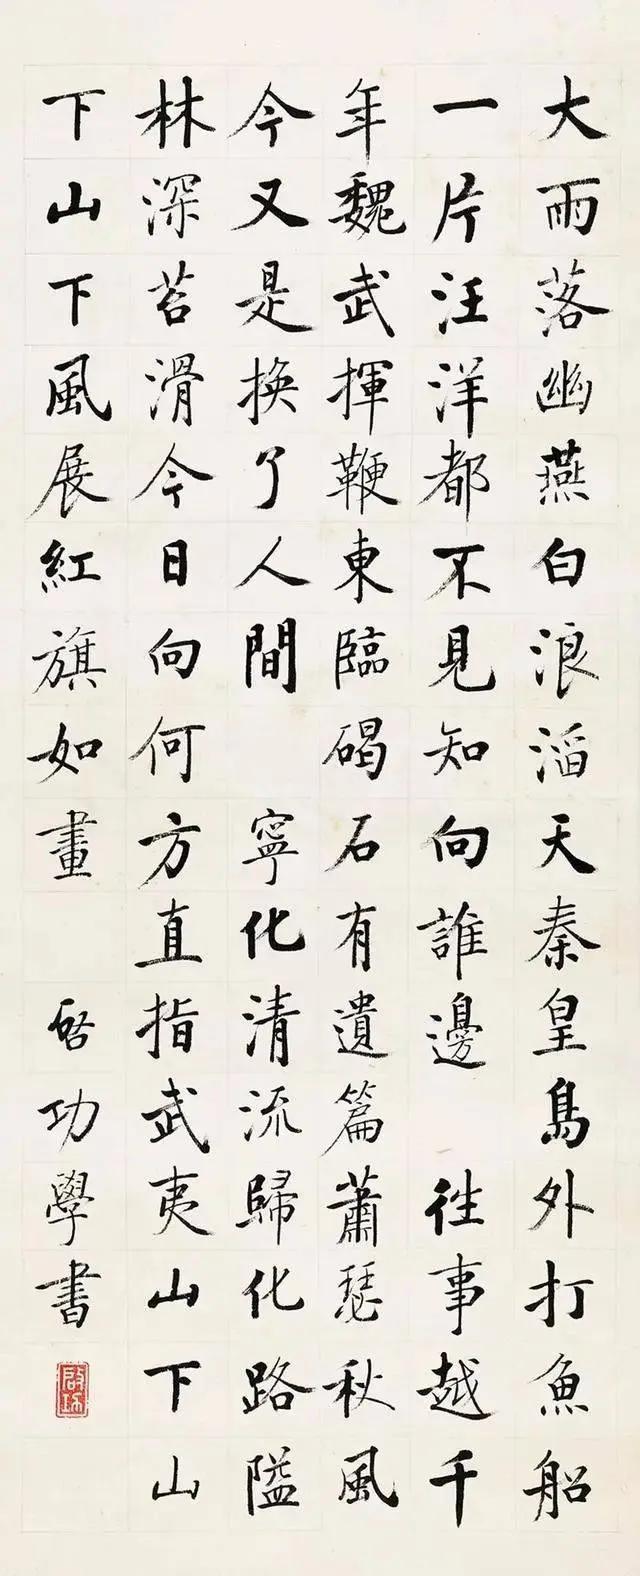 大雨落幽燕白浪滔天秦皇島外打魚船
一片汪洋都不見知向誰邊 往事越千
年魏武揮鞭東臨碣石有遺篇蕭瑟秋風
今又是換了人間 寧化清流歸化路隘
林深苔滑今日向何方直指武夷山下山
下山下風展紅旗如畫 啓功學書
啟功